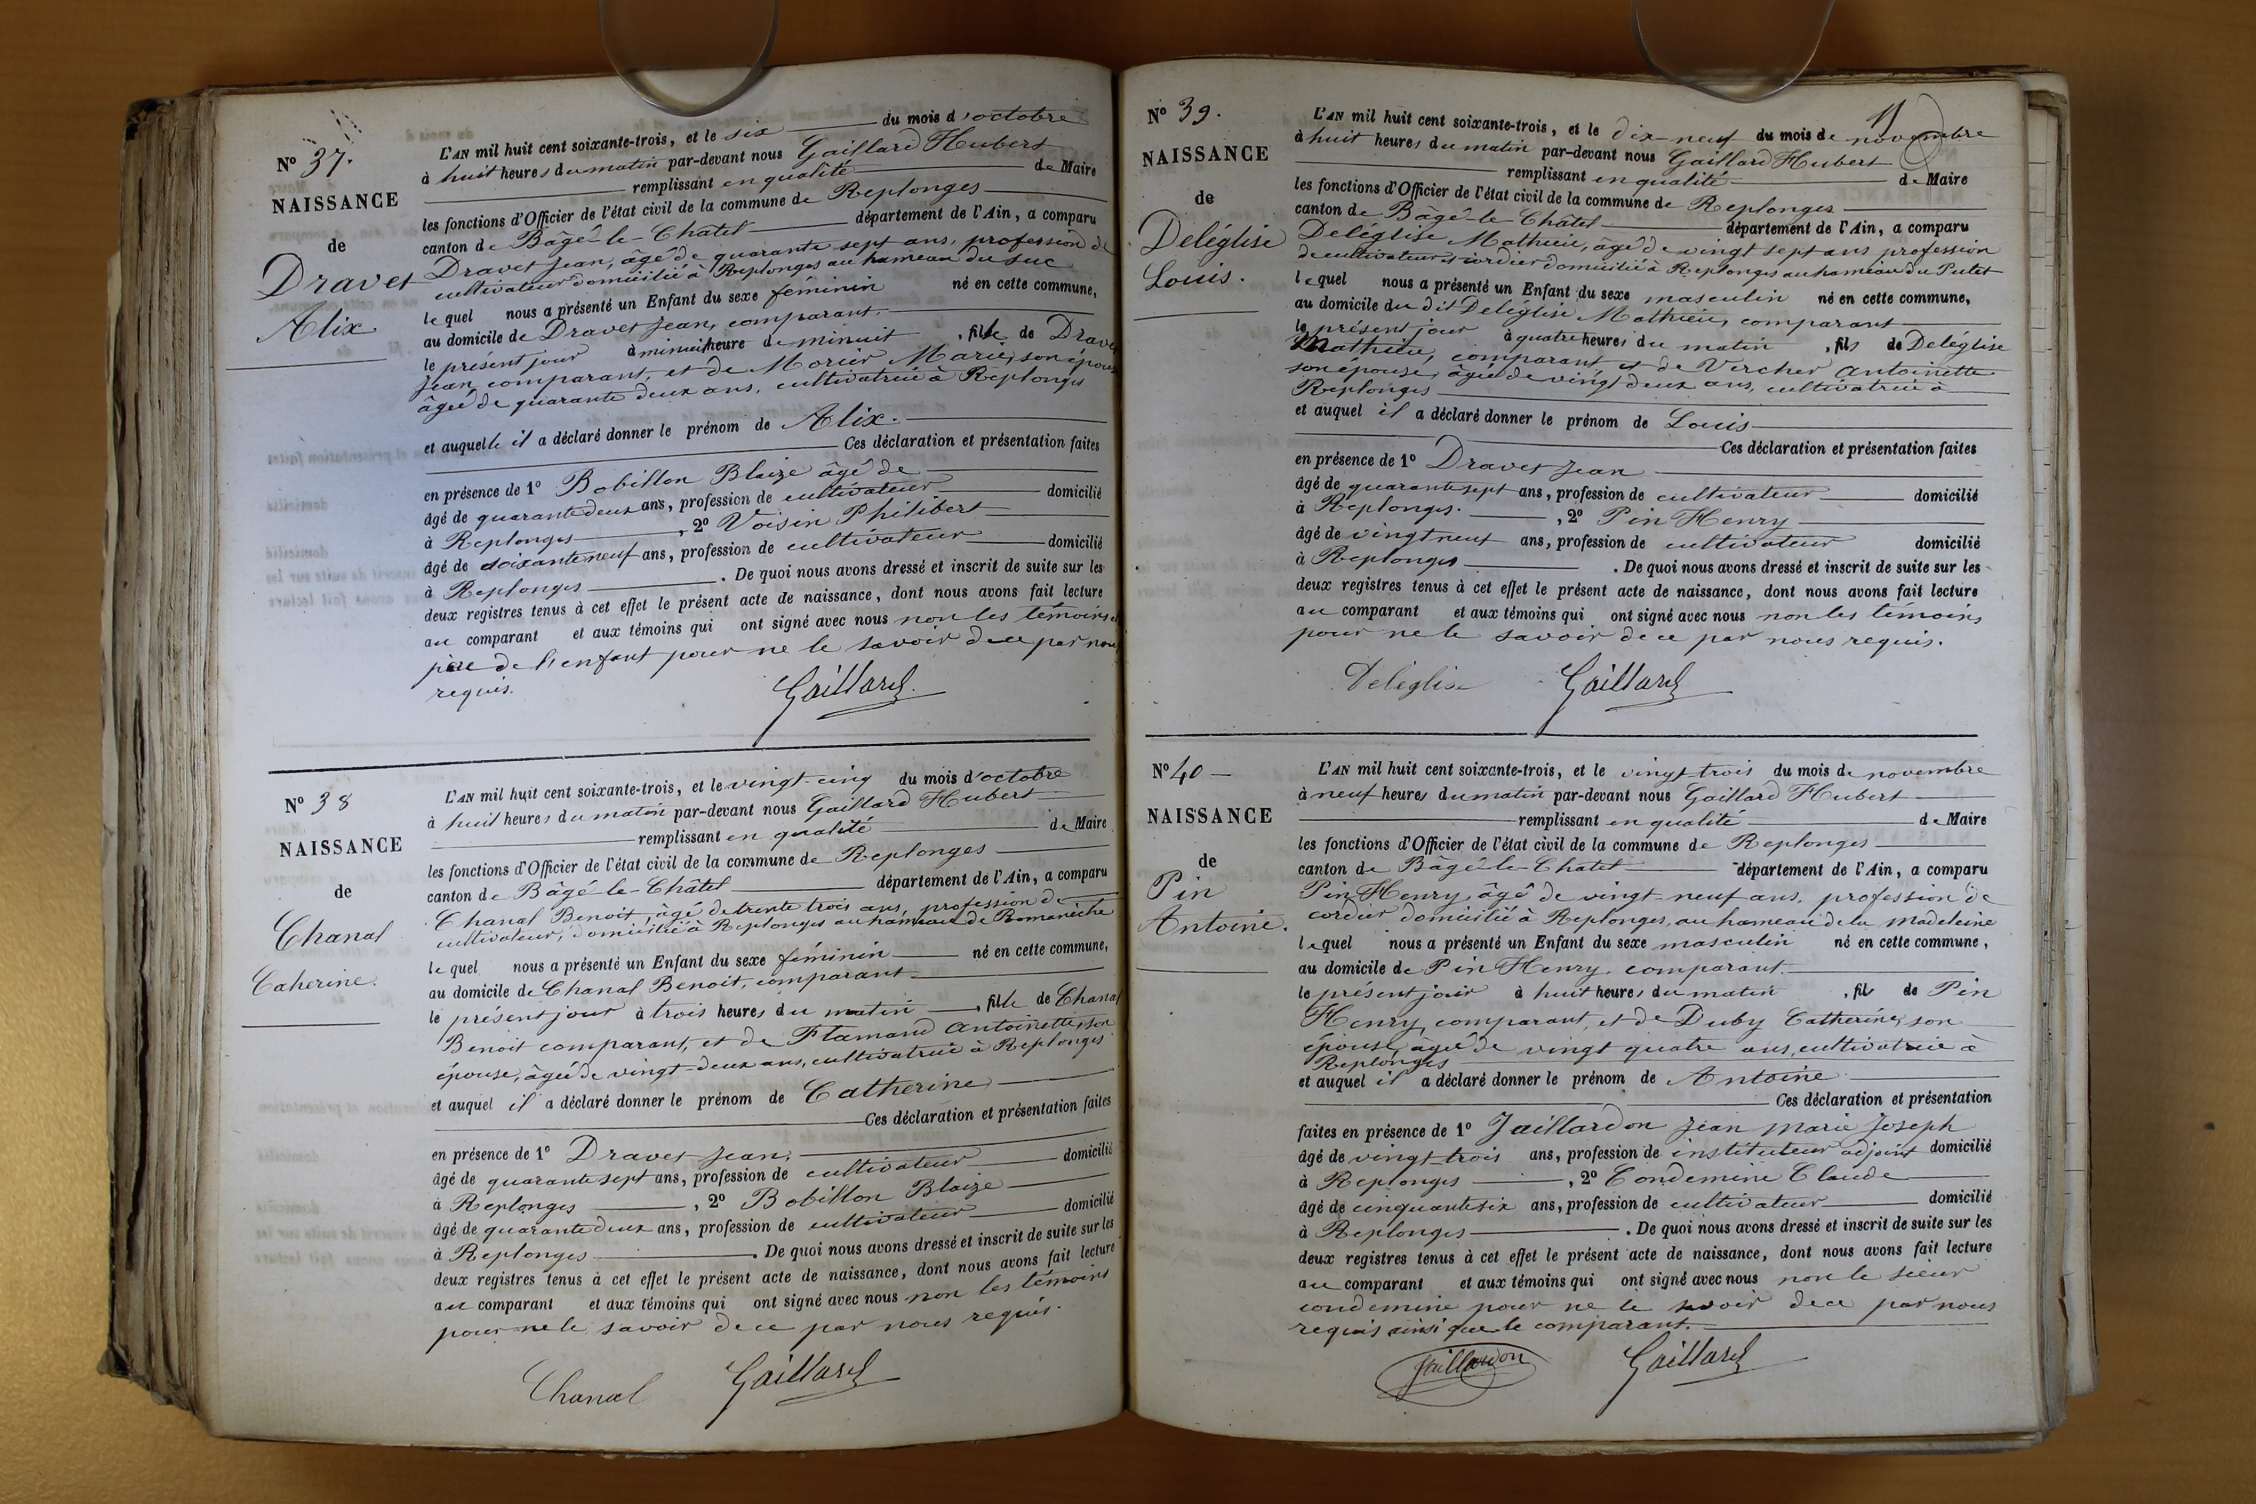 N° 37.
NAISSANCE
de
Dravet
Alix
L'AN mil huit cent soixante-trois, et le six du mois d'octobre
à huit heures du matin par-devant nous Gaillard Hubert
remplissant en qualité de Maire
les fonctions d'Officier de l'état civil de la commune de Replonges
canton de Bâgé-le-Châtel département de l'Ain, a comparu
Dravet Jean, âgé de quarante sept ans, profession de
cultivateur domicilié à Replonges au hameau du suc
lequel nous a présenté un Enfant du sexe féminin né en cette commune,
au domicile de Dravet Jean, comparant.
le présent jour à minuit heure de minuit, fille de Dravet
Jean, comparant, et de Morier Marie, son épouse
âgée de quarante deux ans, cultivatrice à Replonges
et auquelle il a déclaré donner le prénom de Alix.
Ces déclaration et présentation faites
en présence de 1° Bobillon Blaize âgé de
âgé de quarante deux ans, profession de cultivateur domicilié
à Replonges, 2° Voisin Philibert
âgé de soixante neuf ans, profession de cultivateur domicilié
à Replonges. De quoi nous avons dressé et inscrit de suite sur les
deux registres tenus à cet effet le présent acte de naissance, dont nous avons fait lecture
au comparant et aux témoins qui ont signé avec nous non les témoins et
père de l'enfant pour ne le savoir de ce par nous
requis.
Gaillard
N° 38
NAISSANCE
de
Chanal
Caherine.
L'AN mil huit cent soixante-trois, et le vingt-cinq du mois d'octobre
à huit heures du matin par-devant nous Gaillard Hubert
remplissant en qualité de Maire
les fonctions d'Officier de l'état civil de la commune de Replonges
canton de Bâgé-le-Châtel département de l'Ain, a comparu
Chanal Benoit, âgé de trente trois ans, profession de
cultivateur, domicilié à Replonges au hameau de Romanèche
lequel nous a présenté un Enfant du sexe féminin né en cette commune,
au domicile de Chanal Benoit, comparant
le présent jour à trois heures du matin, fille de Chanal
Benoit comparant, et de Flamand Antoinette, son
épouse, âgée de vingt-deux ans, cultivatrice à Replonges
et auquel il a déclaré donner le prénom de Catherine
Ces déclaration et présentation faites
en présence de 1° Dravet Jean,
âgé de quarante sept ans, profession de cultivateur domicilié
à Replonges, 2° Bobillon Blaize
âgé de quarante deux ans, profession de cultivateur domicilié
à Replonges. De quoi nous avons dressé et inscrit de suite sur les
deux registres tenus à cet effet le présent acte de naissance, dont nous avons fait lecture
au comparant et aux témoins qui ont signé avec nous non les témoins
pour ne le savoir de ce par nous requis.
Chanal Gaillard
N° 39.
NAISSANCE
de
Deléglise
Louis.
11
L'AN mil huit cent soixante-trois, et le dix-neuf du mois de novembre
à huit heures du matin par-devant nous Gaillard Hubert
remplissant en qualité de Maire
les fonctions d'Officier de l'état civil de la commune de Replonges
canton de Bâgé-le-Châtel département de l'Ain, a comparu
Deléglise Mathieu, âgé de vingt sept ans profession
de cultivateur et cordier domicilié à Replonges au hameau du Putet
lequel nous a présenté un Enfant du sexe masculin né en cette commune,
au domicile du dit Deléglise Mathieu, comparant
le présent jour à quatre heures du matin, fils de Deléglise
Mathieu, comparant et de Vercher Antoinette
son épouse, âgée de vingt deux ans, cultivatrice à
Replonges
et auquel il a déclaré donner le prénom de Louis
Ces déclaration et présentation faites
en présence de 1° Dravet Jean
âgé de quarante sept ans, profession de cultivateur domicilié
à Replonges., 2° Pin Henry
âgé de vingt neuf ans, profession de cultivateur domicilié
à Replonges. De quoi nous avons dressé et inscrit de suite sur les
deux registres tenus à cet effet le présent acte de naissance, dont nous avons fait lecture
au comparant et aux témoins qui ont signé avec nous non les témoins
pour ne le savoir de ce par nous requis.
Deléglise Gaillard
N° 40
NAISSANCE
de
Pin
Antoine.
L'AN mil huit cent soixante-trois, et le vingt-trois du mois de novembre
à neuf heures du matin par-devant nous Gaillard Hubert
remplissant en qualité de Maire
les fonctions d'Officier de l'état civil de la commune de Replonges
canton de Bâgé-le-Chatel département de l'Ain, a comparu
Pin Henry, âgé de vingt-neuf ans, profession de
cordier domicilié à Replonges, au hameau de la Madeleine
lequel nous a présenté un Enfant du sexe masculin né en cette commune,
au domicile de Pin Henry comparant.
le présent jour à huit heures du matin, fils de Pin
Henry, comparant, et de Duby Catherine, son
épouse, âgée de vingt quatre ans, cultivatrice à
Replonges
et auquel il a déclaré donner le prénom de Antoine
Ces déclaration et présentation
faites en présence de 1° Jaillardon Jean Marie Joseph
âgé de vingt-trois ans, profession de instituteur adjoint domicilié
à Replonges, 2° Condemine Claude
âgé de cinquante six ans, profession de cultivateur domicilié
à Replonges. De quoi nous avons dressé et inscrit de suite sur les
deux registres tenus à cet effet le présent acte de naissance, dont nous avons fait lecture
au comparant et aux témoins qui ont signé avec nous non le sieur
condemine pour ne le savoir de ce par nous
requis ainsi que le comparant.
Jaillardon Gaillard